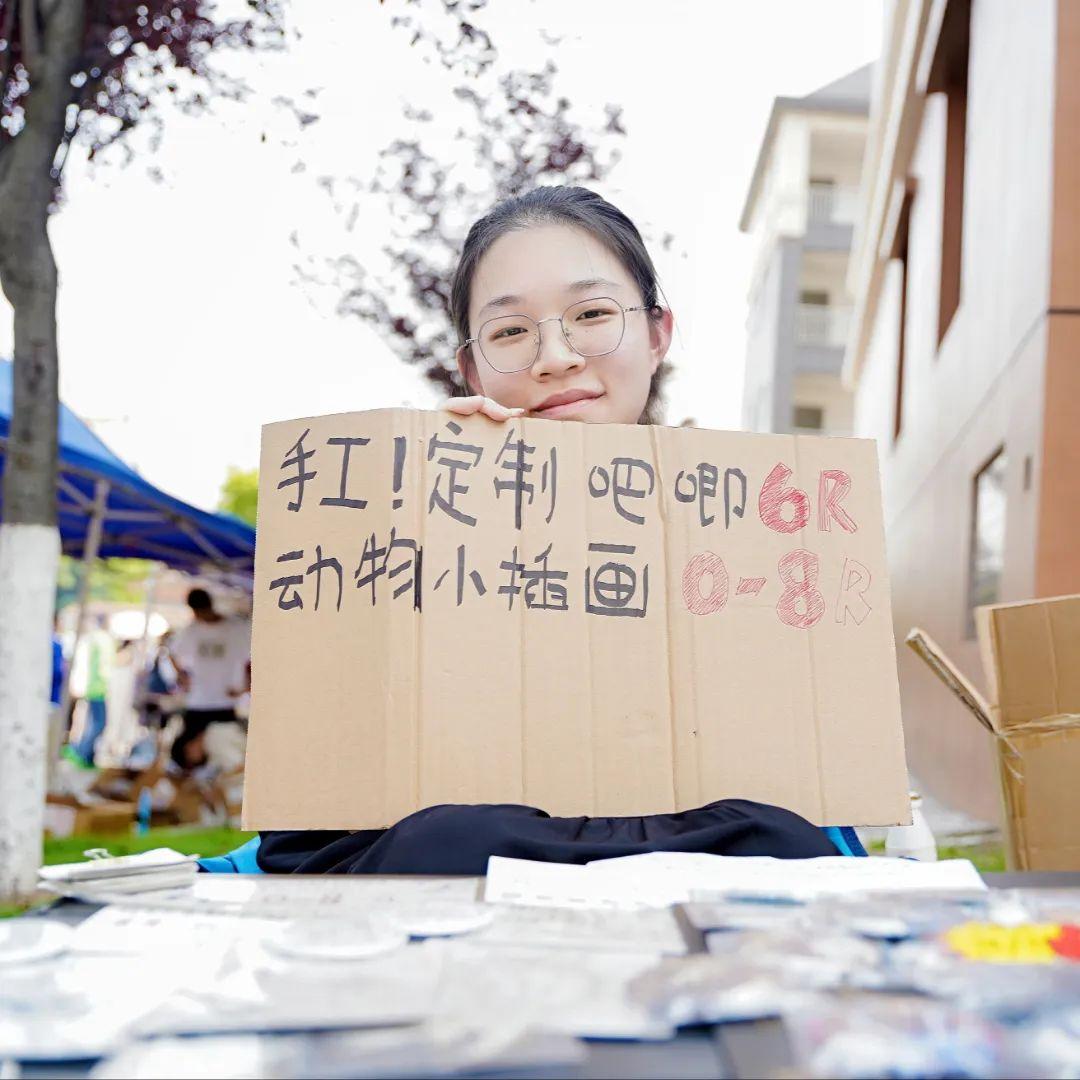 手工!定制吧唧6R
动物小插画0-8R